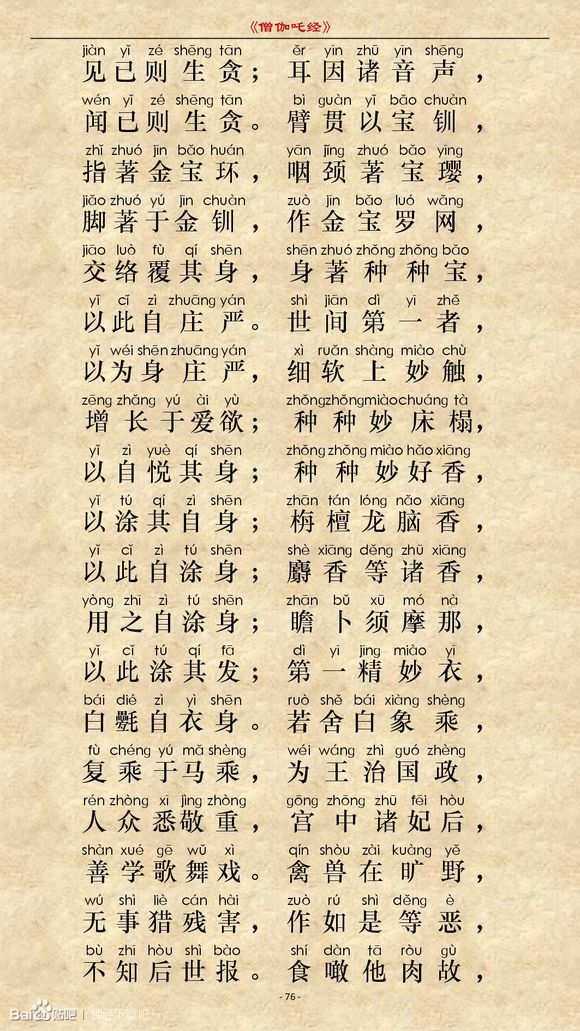 《僧伽吒经》
jiàn yǐ zé shēng tān ěr yīn zhū yīn shēng
见己则生贪；耳因诸音声，
wén yǐ zé shēng tān bì guàn yǐ bǎo chuàn
闻已则生贪。臂贯以宝钏，
zhǐ zhuó jīn bǎo huán yān jǐng zhuó bǎo yīng
指著金宝环，咽颈著宝璎，
jiǎo zhuó yú jīn chuàn zuò jīn bǎo luó wǎng
脚著于金钏，作金宝罗网，
jiāo luò fù qí shēn shēn zhuó zhǒng zhǒng bǎo
交络覆其身，身著种种宝，
yǐ cǐ zì zhuāng yán shì jiān dì yī zhě
以此自庄严。世间第一者，
yǐ wéi shēn zhuāng yán xì ruǎn shàng miào chù
以为身庄严，细软上妙触，
zēng zhǎng yú ài yù zhǒng zhǒng miào chuáng tà
增长于爱欲；种种妙床榻，
yǐ zì yuè qí shēn zhǒng zhǒng miào hǎo xiāng
以自悦其身；种种妙好香，
yǐ tú qí zì shēn zhān tán lóng nǎo xiāng
以涂其自身；栴檀龙脑香，
yǐ cǐ zì tú shēn shè xiāng děng zhū xiāng
以此自涂身；麝香等诸香，
yòng zhī zì tú shēn zhān bǔ xū mó nà
用之自涂身；瞻卜须摩那，
yǐ cǐ tú qí fā dì yī jīng miào yī
以此涂其发；第一精妙衣，
bái dié zì yì shēn ruò shě bái xiàng shèng
白氎自衣身。若舍白象乘，
fù chéng yú mǎ shèng wéi wáng zhì guó zhèng
复乘于马乘，为王治国政，
rén zhòng xī jìng zhòng gōng zhōng zhū fēi hòu
人众悉敬重，宫中诸妃后，
shàn xué gē wǔ xì qín shòu zài kuàng yě
善学歌舞戏。禽兽在旷野，
wú shì liè cán hài zuò rú shì děng è
无事猎残害，作如是等恶，
bù zhī hòu shì bào shí dàn tā ròu gù
不知后世报。食噉他肉故，
- 76 -
Bai贴吧 | 佛经下载吧